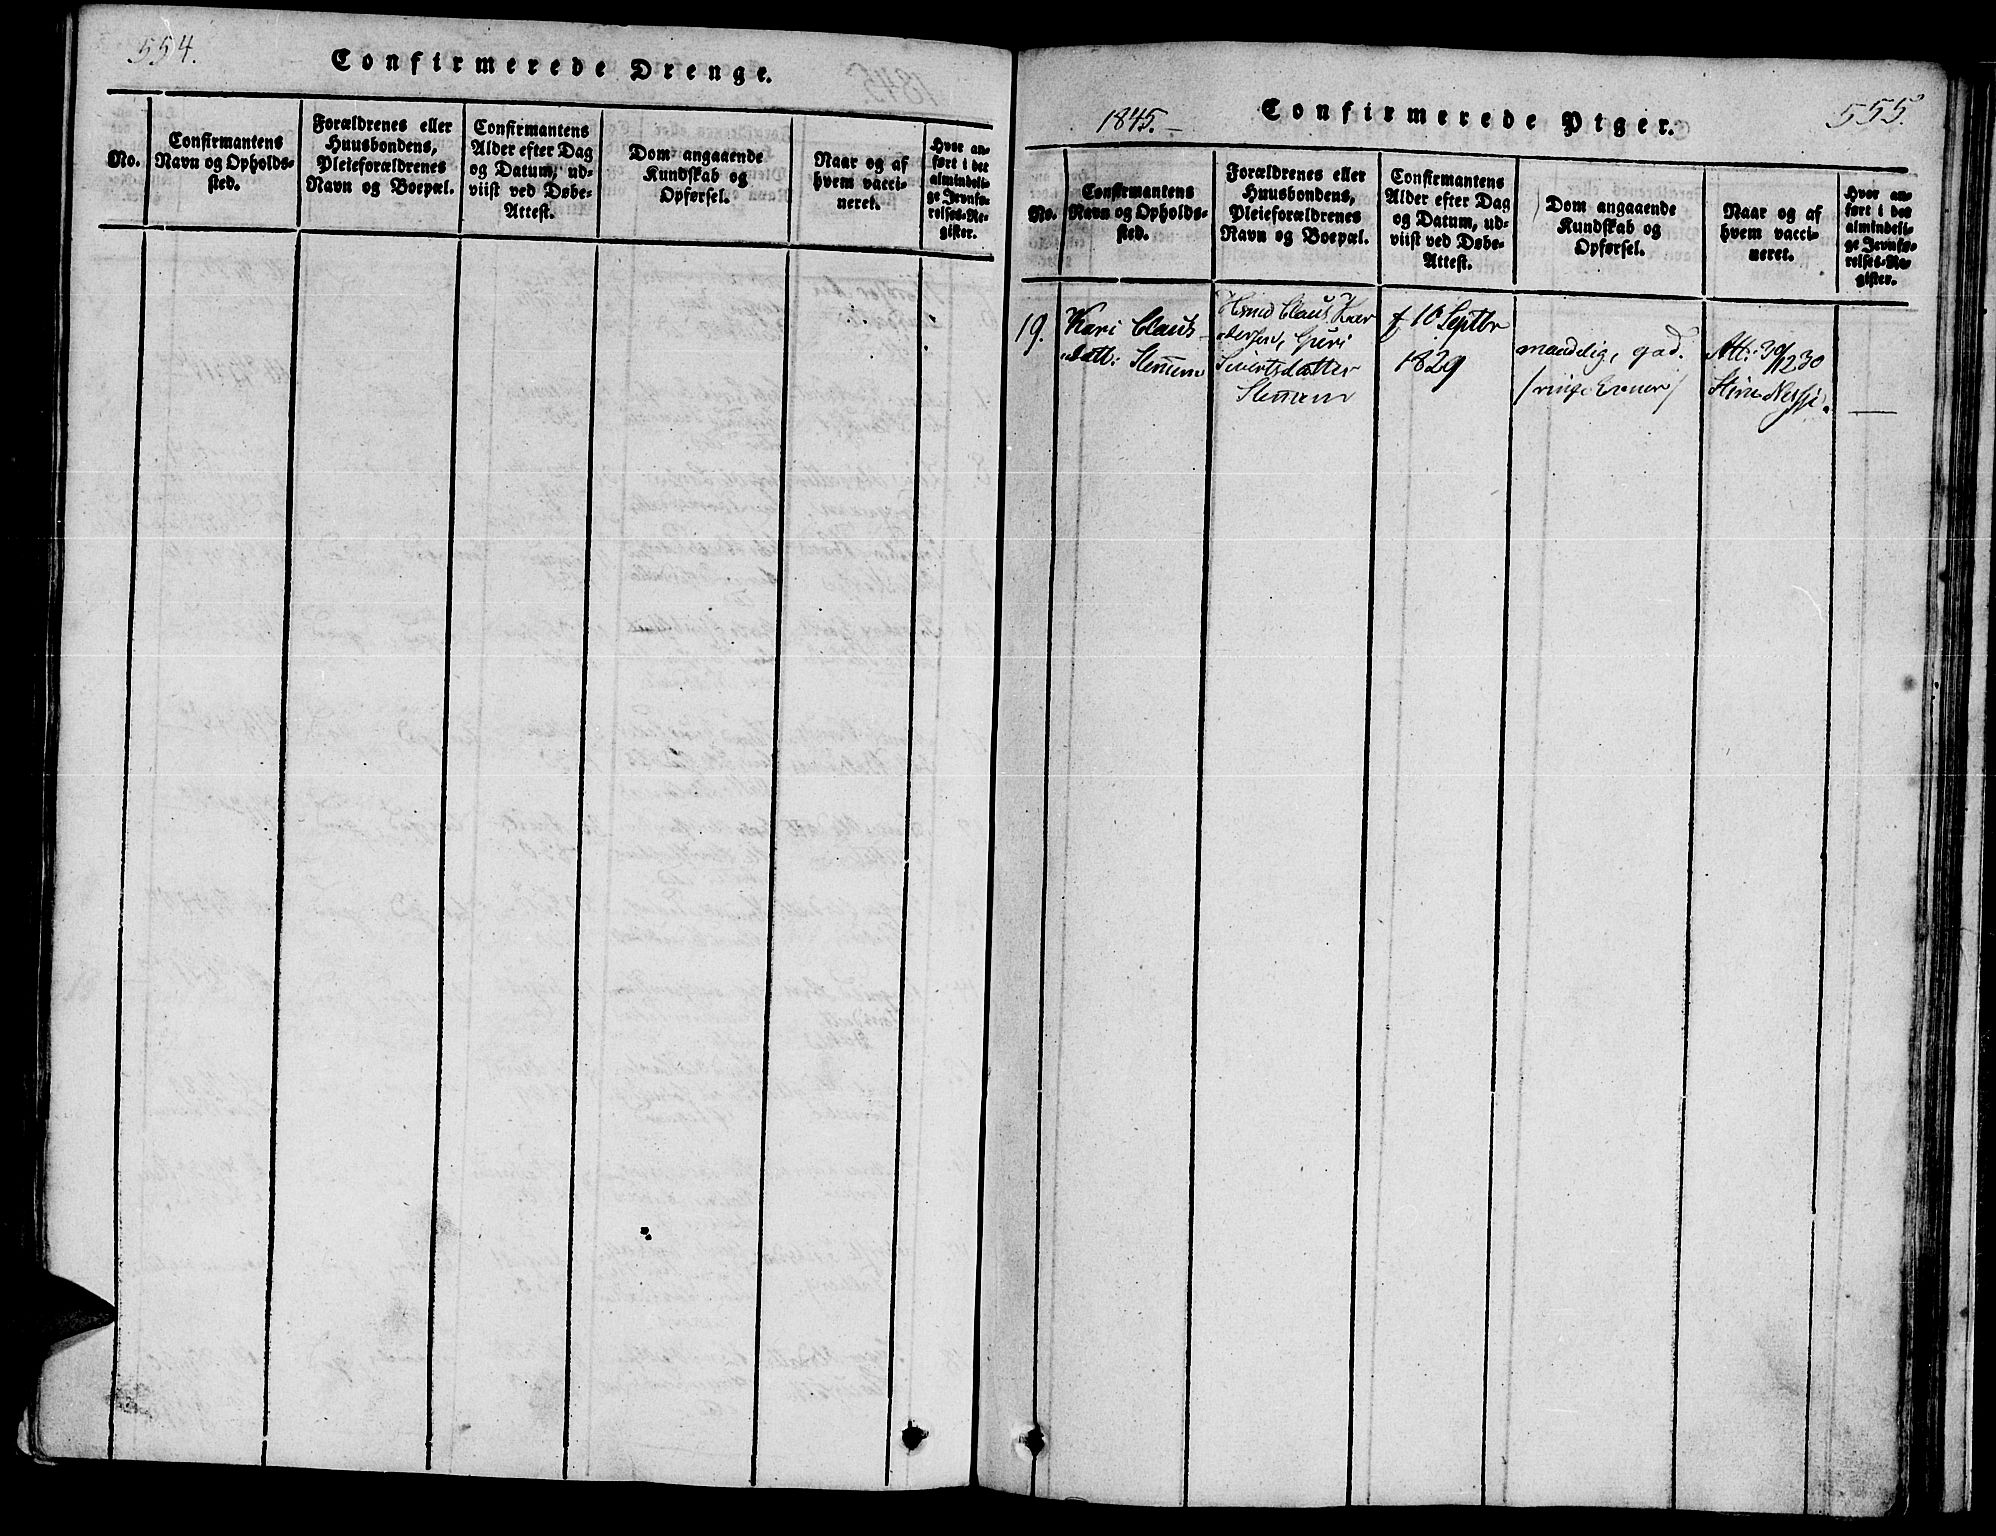 554.
Confirmerede Drenge.
No.
Confirmantens
Navn og Opholds-
sted.
Forældrenes eller
Huusbondens,
Pleieforældrenes
Navn og Boepæl.
Confirmantens
Alder efter Dag
og Datum, ud-
viist ved Døbe-
Attest.
Dom angaaende
Kundskab og
Opførsel.
Naar og af
hvem vacci-
neret.
Hvor an-
ført i det
almindeli-
ge Jevnfø-
relses-Re-
gister.
1845.
Confirmerede Piger.
555.
No.
Confirmantens
Navn og Opholds-
sted.
Forældrenes eller
Huusbondens,
Pleieforældrenes
Navn og Boepæl.
Confirmantens
Alder efter Dag
og Datum, ud-
viist ved Døbe-
Attest.
Dom angaaende
Kundskab og
Opførsel.
Naar og af
hvem vacci-
neret.
Hvor an-
ført i det
almindeli-
ge Jevnfø-
relses-Re-
gister.
19.
Kari Claus
datt:
Hsmd Claus
Guri
Sivertsdatter
f 10 Septbr
1829
maadelig, god.
Att: